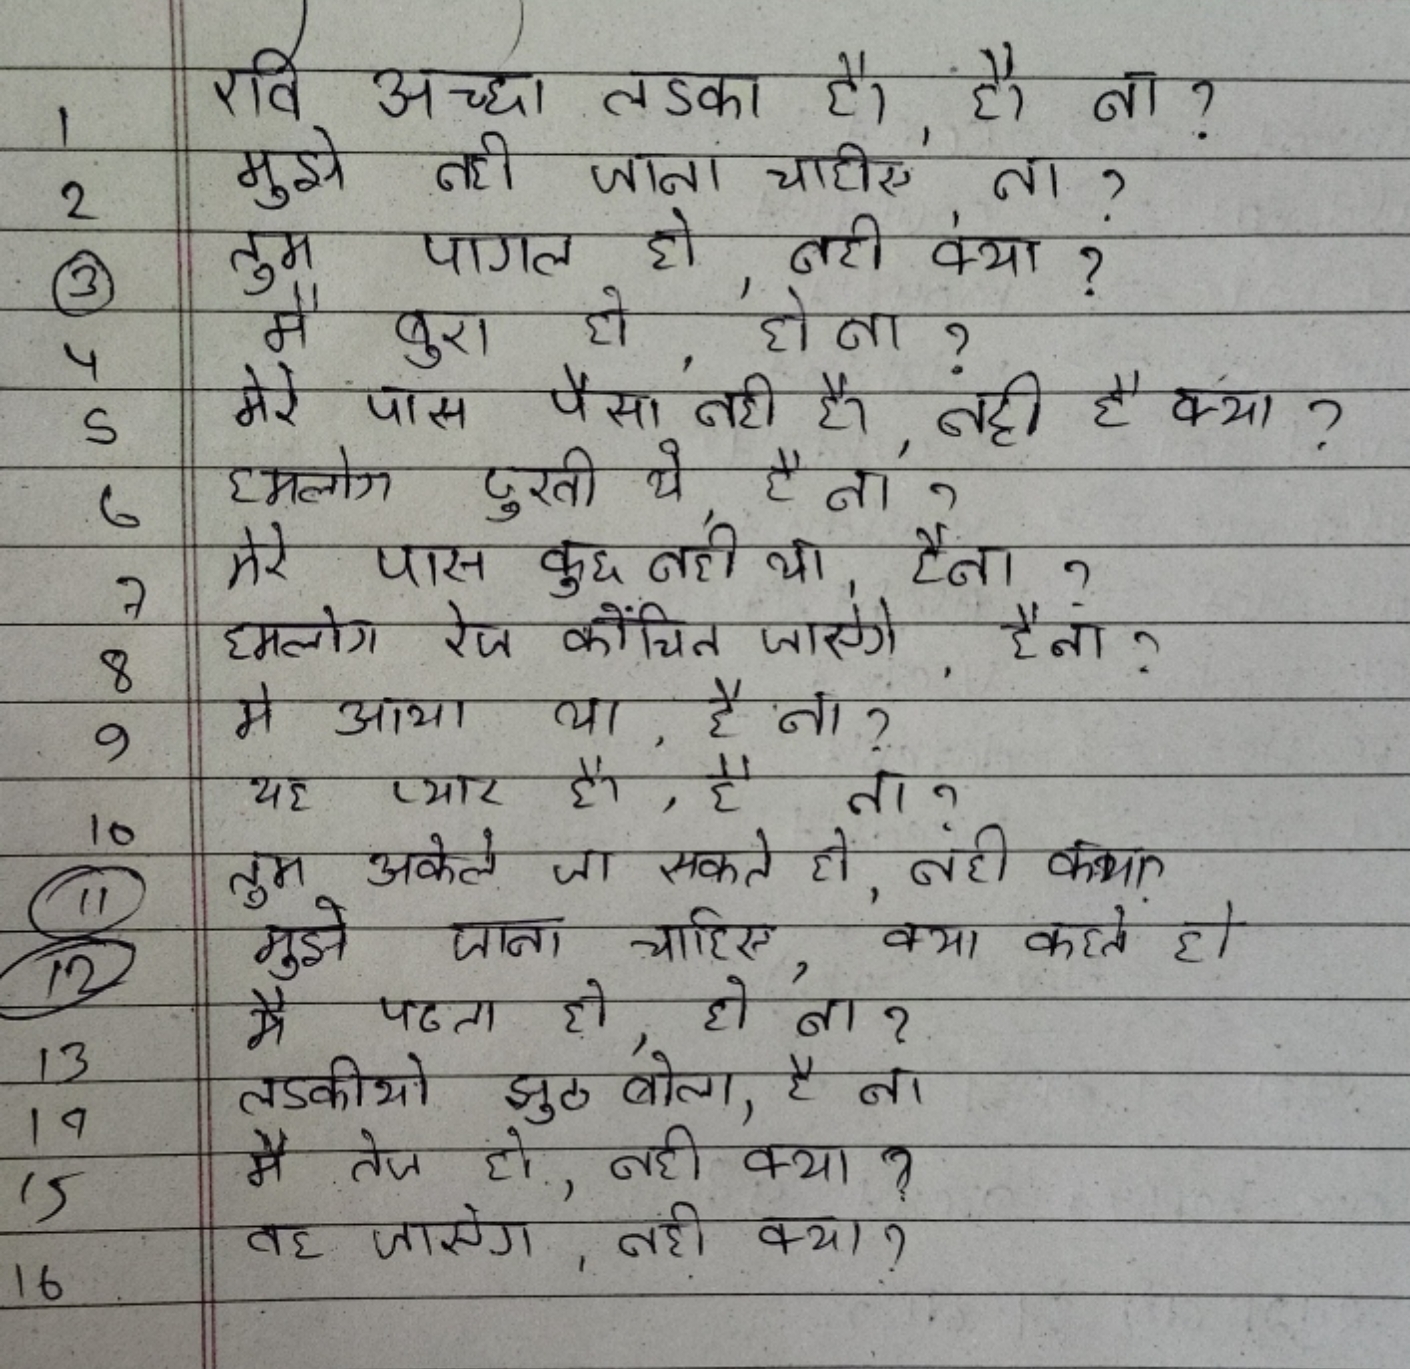 1 रवि अच्छा लडका है, है ना ?
2 मुझे नही जाना चाहीए, ना ?
3 तुम पागल हो, नही क्या ?
4 मै बुरा हो, हो ना ?
5 मेरे पास पैसा नही है, नही है क्या ?
6 हमलोग दुखी थे, है ना ?
7 मेरे पास कुछ नही था, हैना ?
8 हमलोग रोज कोंचिन जाएेगे, हैना ?
9 मे आया था, है ना ?
10 यह प्यार है, है ना ?
11 तुम अकेले जा सकते हो, नही क्या?
12 मुझे जाना चाहिए, क्या कहते हो
13 मै पढता हो, हो ना ?
14 लडकीयो झुठ बोला, है ना
15 मै तेज हो, नही क्या ?
16 वह जाएेगा, नही क्या ?